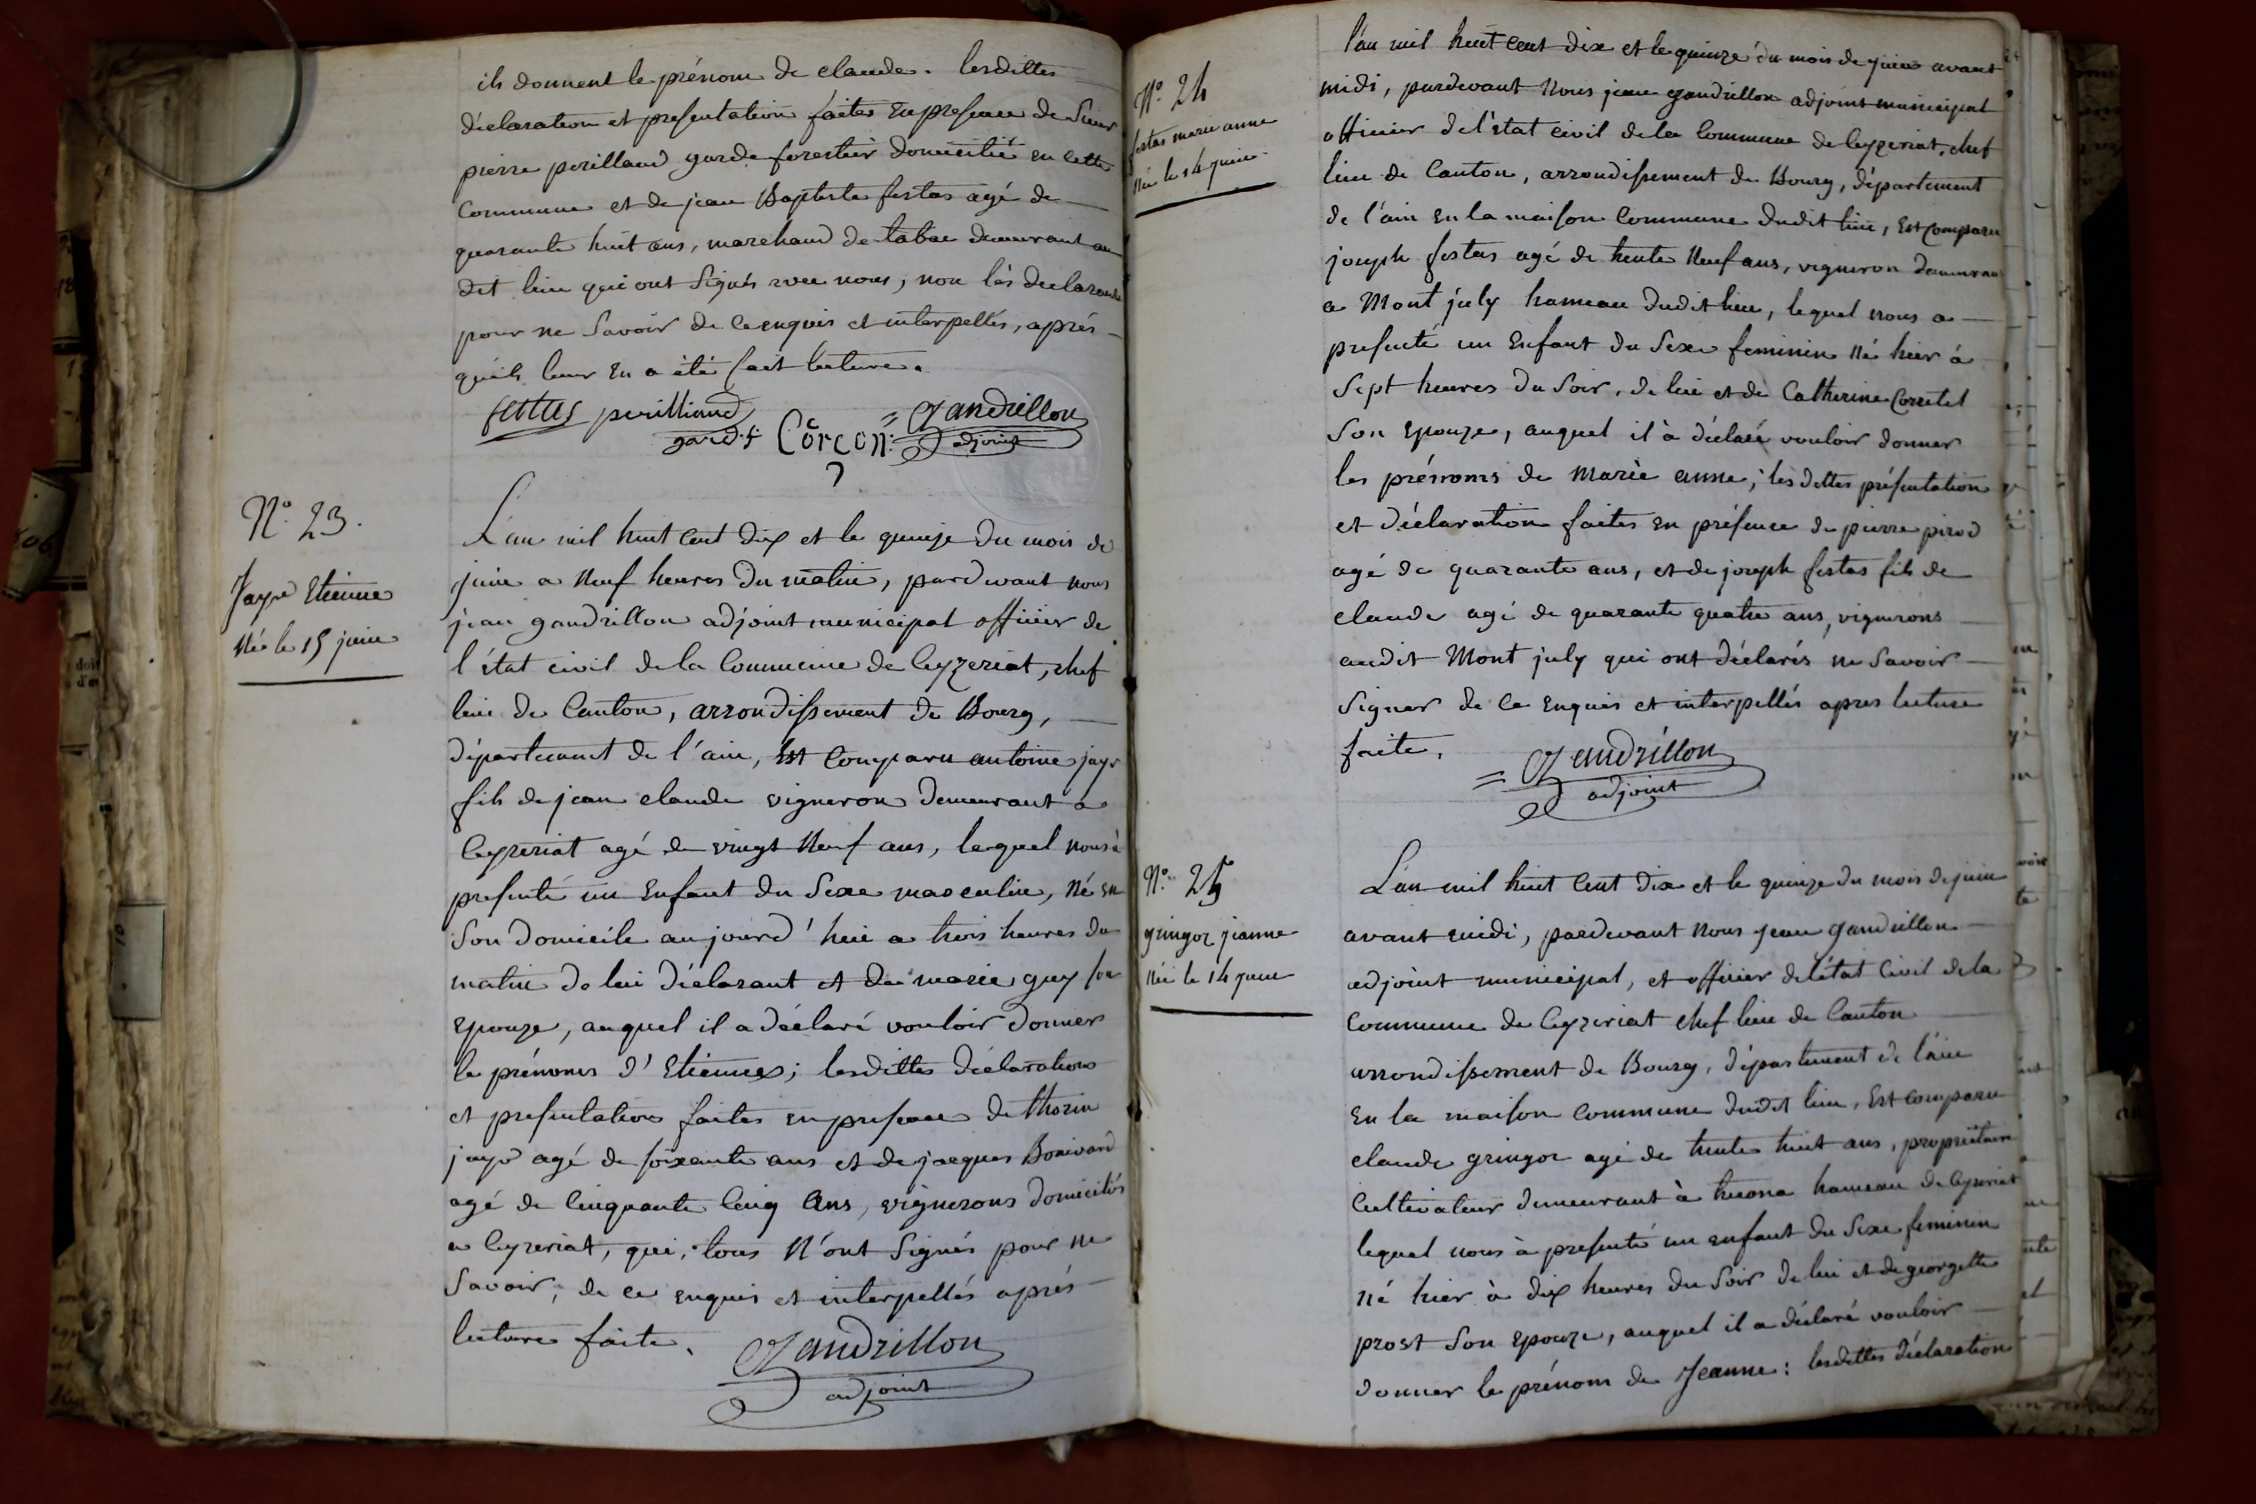 ils donnent le prénom de claude. lesdittes
déclaration et presentation faites en presence de Sieur
pierre perilland garde forestier domicilié en cette
Commune et de jean Baptiste festas agé de
quarante huit ans, marchand de tabac demeurant au
dit lieu qui ont signés avec nous, non lés declarants
pour ne savoir de ce enquis et interpellés, aprés
qu'ils leur en a été fait lecture.
perilliand Gandrillon
gard. f. Corcon adjoint
N.° 23.
Jayr Etienne
Né le 15 juin
L'an mil huit cent dix et le quinze du mois de
juin a neuf heures du matin, pardevant nous
jean gandrillon adjoint municipal officier de
l'état civil de la Commune de Ceyzeriat, chef
lieu de Canton, arrondissement de Bourg,
département de l'ain, Est Comparu antoine jayr
fils de jean claude vigneron demeurant a
Ceyzeriat agé de vingt neuf ans, lequel nous à
presenté un Enfant du Sexe masculin, né en
son domicile aujourd'hui a trois heures du
matin de lui déclarant et de marie guy son
epouze, auquel il a déclaré vouloir donner
le prénoms d'Etienne; lesdittes déclaration
et presentation faites en presence de
jayr agé de soixante ans et de jacques Bonivard
agé de Cinquante Cinq ans, vignerons domiciliés
a Ceyzeriat, qui, tous N'ont Signés pour ne
Savoir, de ce enquis et interpellés aprés
lecture faite. Gandrillon
adjoint
N.° 24
festas marie anne
Née le 14 juin
l'an mil huit cent dix et le quinze du mois de juin avant
midi, pardevant Nous jean gandrillon adjoint municipal
officier de l'état civil de la Commune de Ceyzeriat, chef
lieu de Canton, arrondissement de Bourg, département
de l'ain en la maison Commune dudit lieu, Est Comparu
joseph festas agé de trente Neuf ans, vigneron demeurant
a Mont july hameau dudit lieu, lequel nous a
presenté un Enfant du Sexe feminin Né hier à
Sept heures du Soir, de lui et de Catherine Corretel
Son Epouze, auquel il à déclaré vouloir donner
les prénoms de Marie anne; lesdittes présentation
et déclaration faites en présence de pierre pirod
agé de quarante ans, et de joseph festas fils de
claude agé de quarante quatre ans, vignerons
audit Mont july qui ont déclarés ne Savoir
Signer de ce Enquis et interpellés apres lecture
faite. Gandrillon
adjoint
N.° 25
gringoz jeanne
Née le 14 juin
L'an mil huit Cent dix et le quinze du mois de juin
avant midi, pardevant Nous jean gandrillon
adjoint municipal, et officier de l'état Civil de la
Commune de Ceyzeriat chef lieu de Canton
arrondissement de Bourg, département de l'ain
En la maison Commune dudit lieu, Est Comparu
claude gringoz agé de trente huit ans, propriétaire
Cultivateur demeurant à hameau de Ceyzeriat
lequel nous à presenté un enfant du Sexe feminin
né hier à dix heures du Soir de lui et de georgette
prost Son epouze, auquel il a déclaré vouloir
donner le prénom de Jeanne: lesdittes déclaration